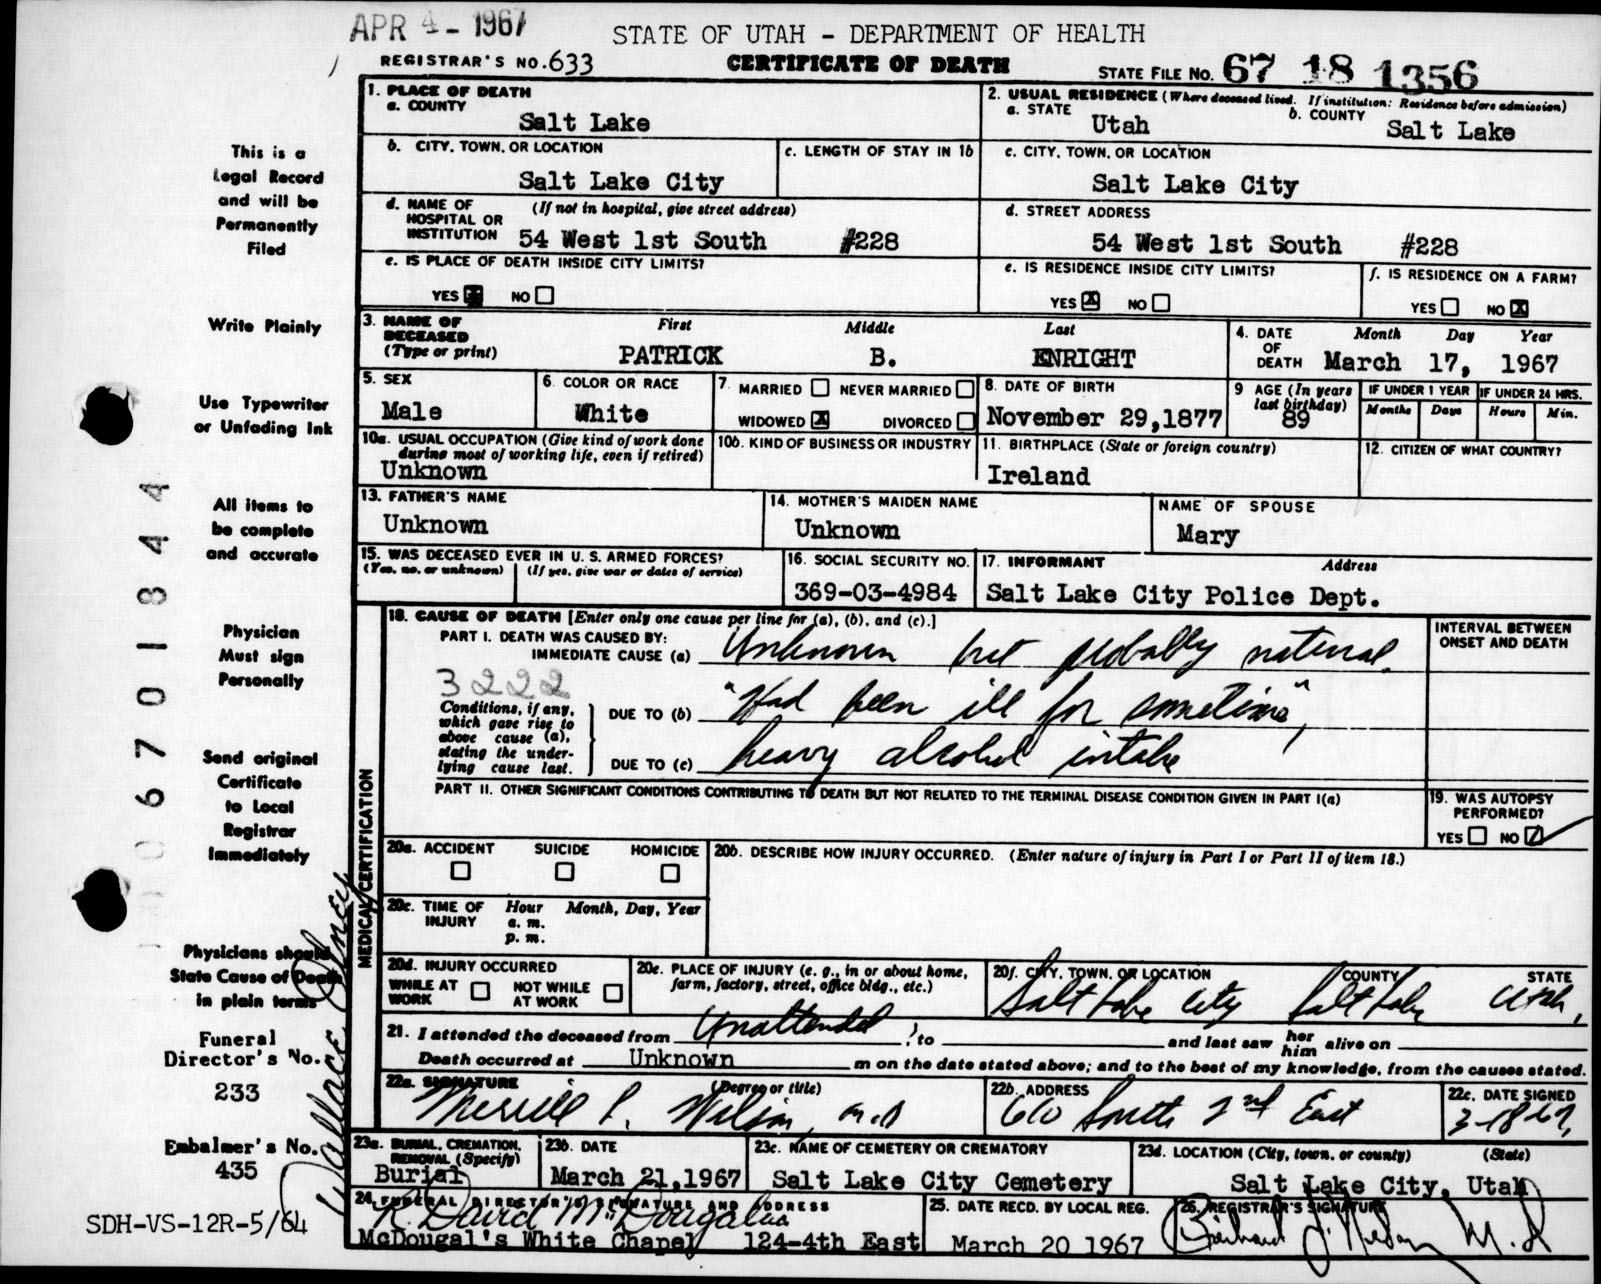 APR 4 - 1967
STATE OF UTAH - DEPARTMENT OF HEALTH
REGISTRAR'S NO. 633
CERTIFICATE OF DEATH
STATE FILE NO. 67 18 1356
This is a
Legal Record
and will be
Permanently
Filed
Write Plainly
Use Typewriter
or Unfading Ink
All items to
be complete
and accurate
Physician
Must sign
Personally
Send original
Certificate
to Local
Registrar
Immediately
Physicians should
State Cause of Death
in plain terms
Funeral
Director's No.
233
Embalmer's No.
435
SDH-VS-12R-5/64
06701844
1. PLACE OF DEATH
a. COUNTY
Salt Lake
2. USUAL RESIDENCE (Where deceased lived. If institution: Residence before admission)
a. STATE
Utah
b. COUNTY
Salt Lake
b. CITY, TOWN, OR LOCATION
Salt Lake City
c. LENGTH OF STAY IN 1b
c. CITY, TOWN, OR LOCATION
Salt Lake City
d. NAME OF HOSPITAL OR INSTITUTION
(If not in hospital, give street address)
54 West 1st South #228
d. STREET ADDRESS
54 West 1st South #228
e. IS PLACE OF DEATH INSIDE CITY LIMITS?
YES X NO
e. IS RESIDENCE INSIDE CITY LIMITS?
YES X NO
f. IS RESIDENCE ON A FARM?
YES NO X
3. NAME OF DECEASED
(Type or print)
First Middle Last
PATRICK B. ENRIGHT
4. DATE OF DEATH
Month Day Year
March 17, 1967
5. SEX
Male
6. COLOR OR RACE
White
7. MARRIED NEVER MARRIED
WIDOWED X DIVORCED
8. DATE OF BIRTH
November 29,1877
9 AGE (In years last birthday)
89
IF UNDER 1 YEAR
Months Days
IF UNDER 24 HRS.
Hours Min.
10a. USUAL OCCUPATION (Give kind of work done
during most of working life, even if retired)
Unknown
10b. KIND OF BUSINESS OR INDUSTRY
11. BIRTHPLACE (State or foreign country)
Ireland
12. CITIZEN OF WHAT COUNTRY?
13. FATHER'S NAME
Unknown
14. MOTHER'S MAIDEN NAME
Unknown
NAME OF SPOUSE
Mary
15. WAS DECEASED EVER IN U. S. ARMED FORCES?
(Yes, no, or unknown) (If yes, give war or dates of service)
16. SOCIAL SECURITY NO.
369-03-4984
17. INFORMANT Address
Salt Lake City Police Dept.
MEDICAL CERTIFICATION
18. CAUSE OF DEATH [Enter only one cause per line for (a), (b), and (c).]
PART I. DEATH WAS CAUSED BY:
IMMEDIATE CAUSE (a) Unknown but probably natural.
3222
Conditions, if any,
which gave rise to
above cause (a),
stating the under-
lying cause last.
DUE TO (b) "Had been ill for sometime",
DUE TO (c) heavy alcohol intake
INTERVAL BETWEEN
ONSET AND DEATH
PART II. OTHER SIGNIFICANT CONDITIONS CONTRIBUTING TO DEATH BUT NOT RELATED TO THE TERMINAL DISEASE CONDITION GIVEN IN PART I(a)
19. WAS AUTOPSY
PERFORMED?
YES NO
20a. ACCIDENT SUICIDE HOMICIDE
20b. DESCRIBE HOW INJURY OCCURRED. (Enter nature of injury in Part I or Part II of item 18.)
20c. TIME OF INJURY
Hour Month, Day, Year
a. m.
p. m.
20d. INJURY OCCURRED
WHILE AT WORK NOT WHILE AT WORK
20e. PLACE OF INJURY (e. g., in or about home,
farm, factory, street, office bldg., etc.)
20f. CITY, TOWN, OR LOCATION COUNTY STATE
Salt Lake City Salt Lake Utah,
21. I attended the deceased from Unattended, to and last saw her him alive on
Death occurred at Unknown m on the date stated above; and to the best of my knowledge, from the causes stated.
22a. SIGNATURE (Degree or title)
Merrill L. Wilson, M.D
22b. ADDRESS
610 South 2nd East
22c. DATE SIGNED
3-18-67,
Wallace
23a. BURIAL, CREMATION,
REMOVAL (Specify)
Burial
23b. DATE
March 21,1967
23c. NAME OF CEMETERY OR CREMATORY
Salt Lake City Cemetery
23d. LOCATION (City, town, or county) (State)
Salt Lake City, Utah
24. FUNERAL DIRECTOR'S SIGNATURE AND ADDRESS
R. David McDougal
McDougal's White Chapel 124-4th East
25. DATE RECD. BY LOCAL REG.
March 20 1967
26. REGISTRAR'S SIGNATURE
M.D